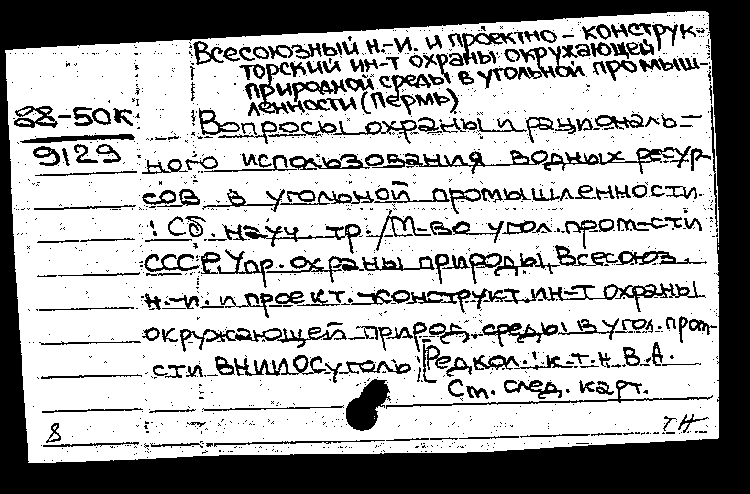 Всесоюзный н.-и. и проектно-конструк-
торский ин-т охраны окружающей
природной среды в угольной промыш-
ленности (Пермь)
88-50К
9129
Вопросы охраны и рациональ-
ного использования водных ресур-
сов в угольной промышленности
: Сб. науч. тр. / М-во угол. пром-сти
СССР, Упр. охраны природы, Всесоюз.
н.-и. и проект.-конструкт. ин-т охраны
окружающей природ. среды в угол. пром-
сти ВНИИОСуголь; [Редкол.: к.т.н. В.А.
См. след. карт.
8
ТН